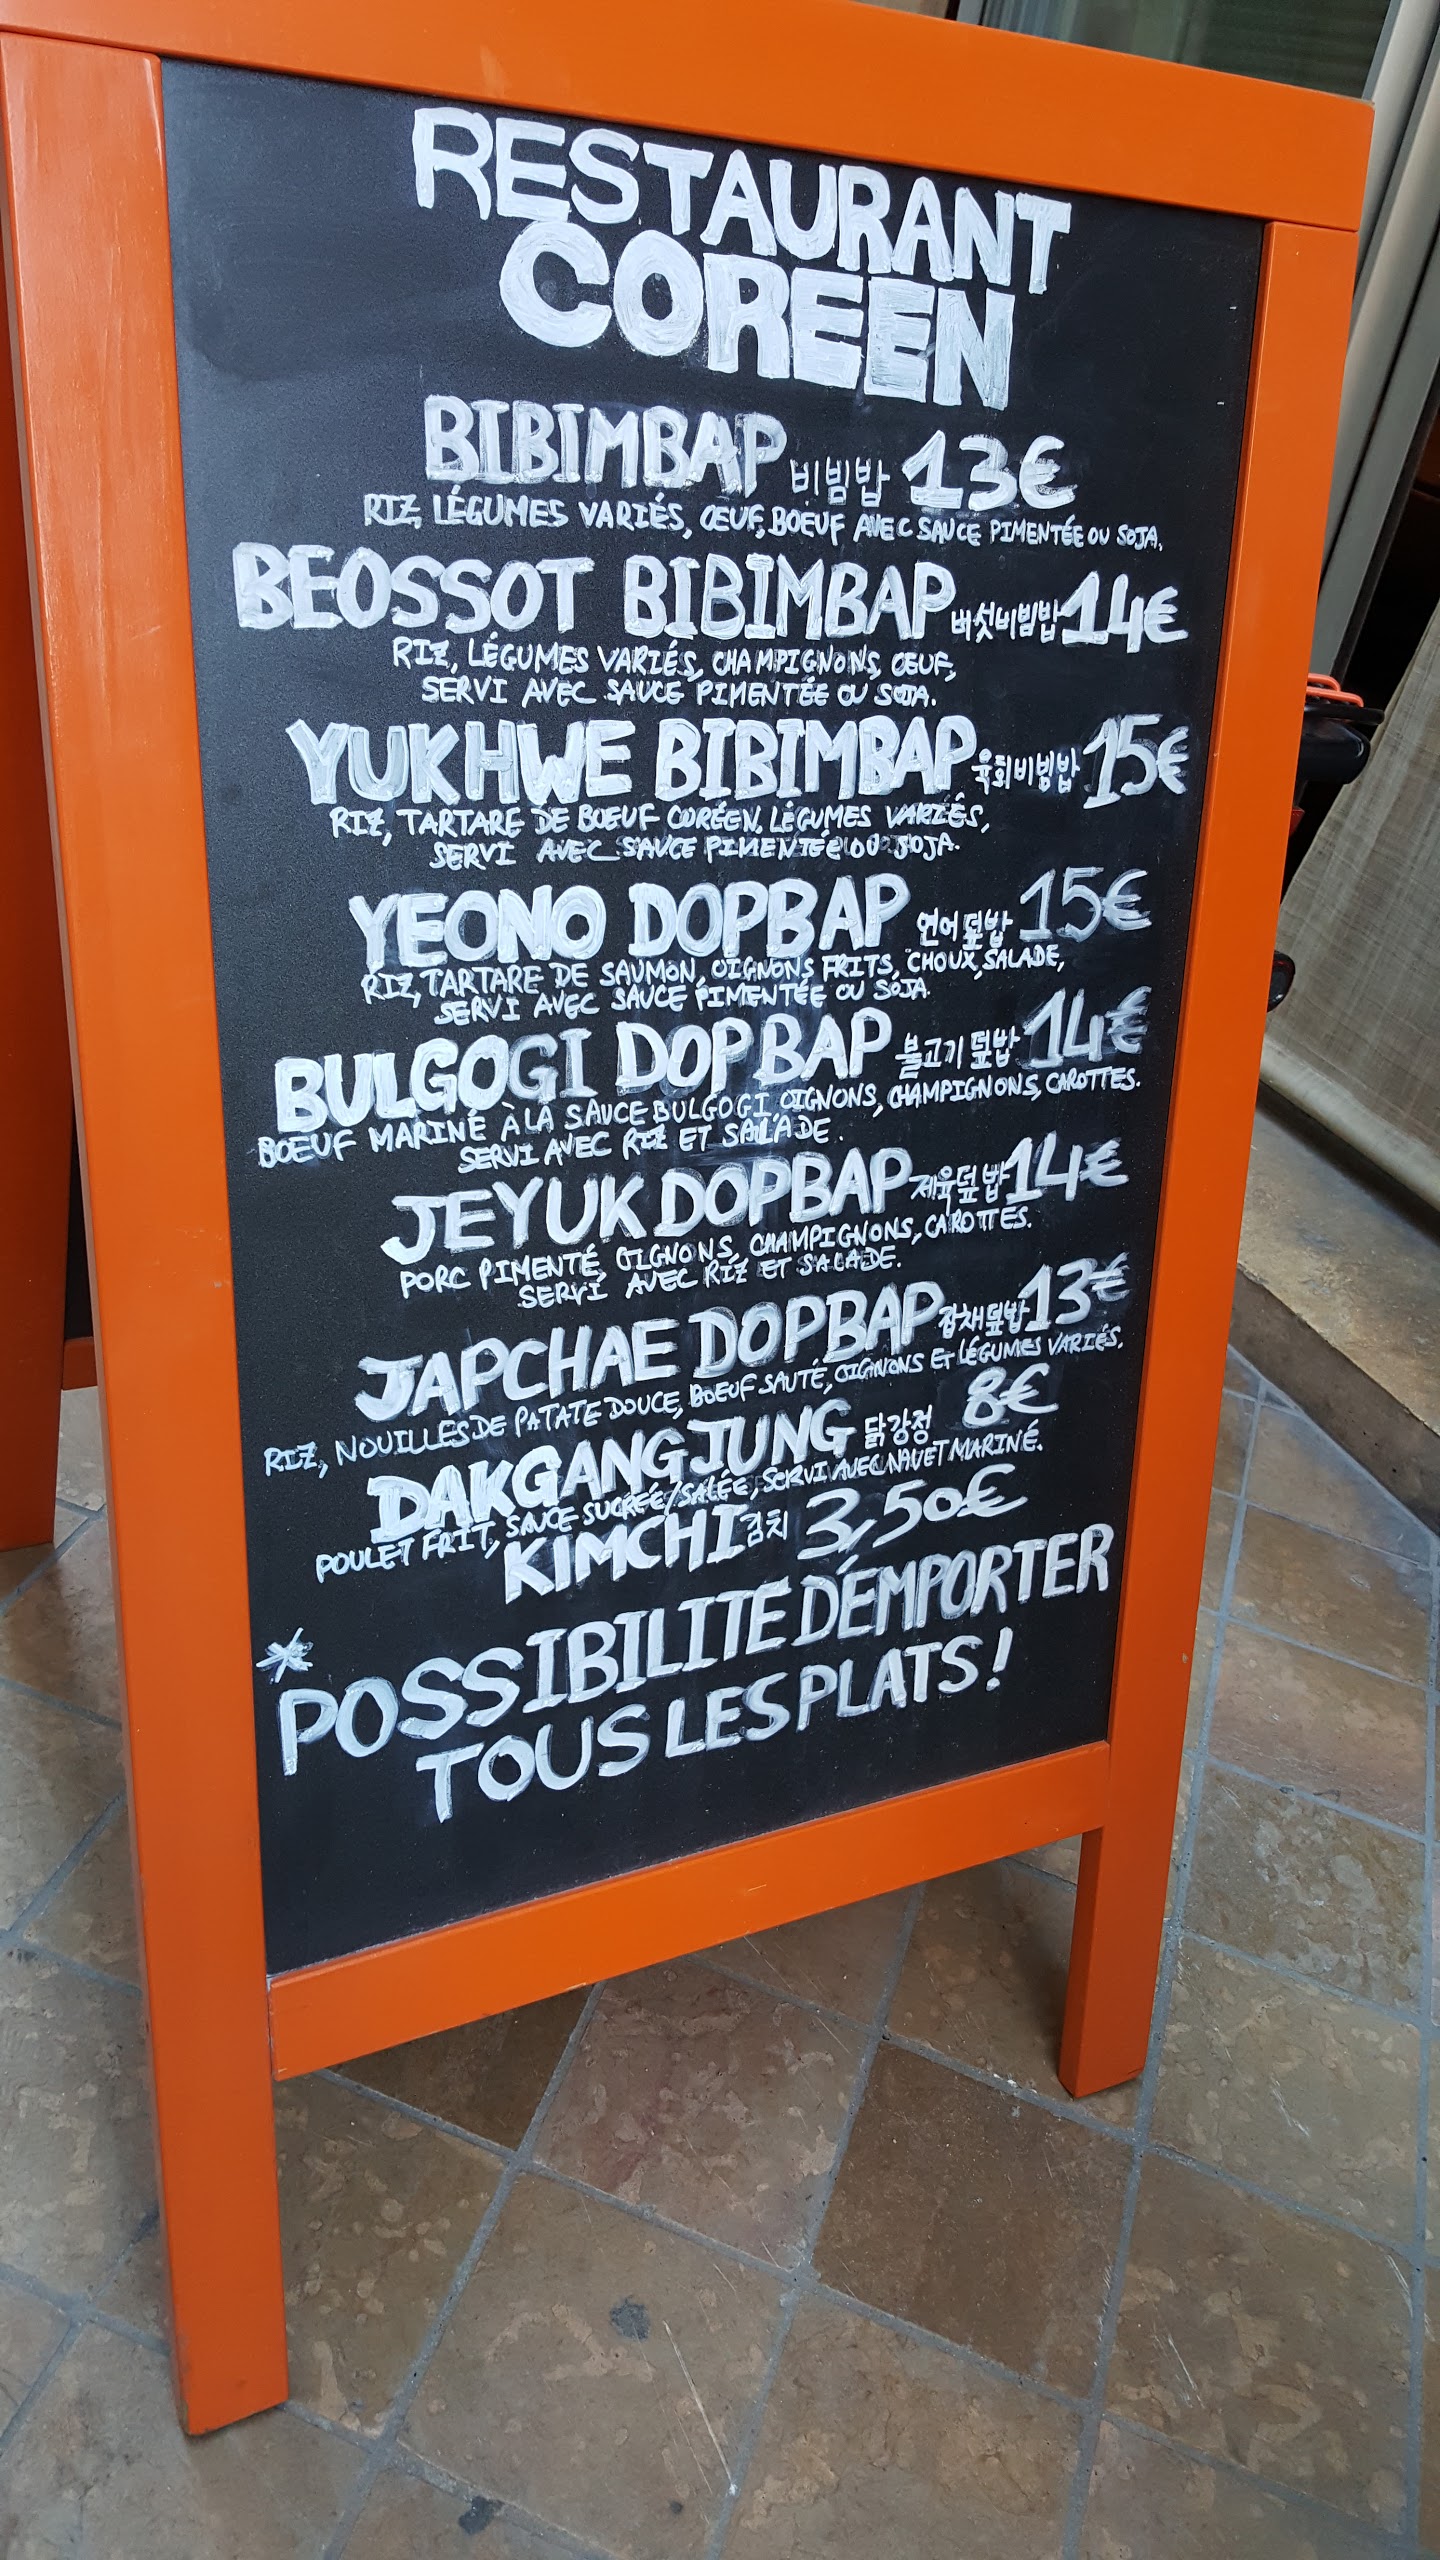 RESTAURANT
COREEN
BIBIMBAP 비빔밥 13€
RIZ, LÉGUMES VARIÉS, ŒUF, BOEUF AVEC SAUCE PIMENTÉE OU SOJA.
BEOSSOT BIBIMBAP 버섯비빔밥 14€
RIZ, LÉGUMES VARIÉS, CHAMPIGNONS, ŒUF,
SERVI AVEC SAUCE PIMENTÉE OU SOJA.
YUKHWE BIBIMBAP 육회비빔밥 15€
RIZ, TARTARE DE BOEUF CORÉEN, LÉGUMES VARIÉS,
SERVI AVEC SAUCE PIMENTÉE OU SOJA.
YEONO DOPBAP 연어덮밥 15€
RIZ, TARTARE DE SAUMON, OIGNONS FRITS, CHOUX, SALADE,
SERVI AVEC SAUCE PIMENTÉE OU SOJA.
BULGOGI DOPBAP 불고기 덮밥 14€
BOEUF MARINÉ À LA SAUCE BULGOGI, OIGNONS, CHAMPIGNONS, CAROTTES.
SERVI AVEC RIZ ET SALADE.
JEYUK DOPBAP 제육덮밥 14€
PORC PIMENTÉ, OIGNONS, CHAMPIGNONS, CAROTTES.
SERVI AVEC RIZ ET SALADE.
JAPCHAE DOPBAP 잡채덮밥 13€
RIZ, NOUILLES DE PATATE DOUCE, BOEUF SAUTÉ, OIGNONS ET LÉGUMES VARIÉS.
DAKGANGJUNG 닭강정 8€
POULET FRIT, SAUCE SUCRÉE/SALÉE, SERVI AVEC NAVET MARINÉ.
KIMCHI 김치 3,50€
* POSSIBILITÉ D'EMPORTER
TOUS LES PLATS!